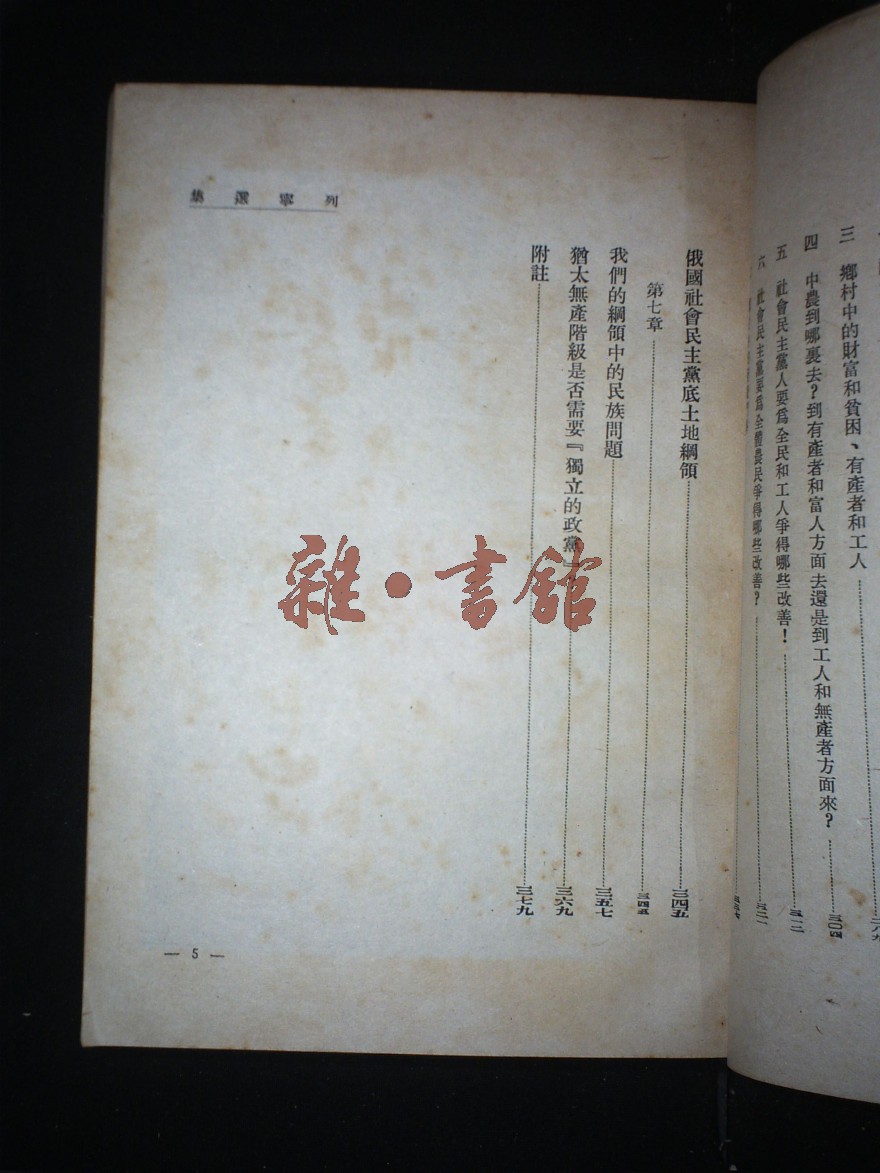 三　鄉村中的財富和貧困、有產者和工人
四　中農到哪裏去？到有產者和富人方面去還是到工人和無產者方面來？……三〇四
五　社會民主黨人要爲全民和工人爭得哪些改善！……三一二
六　社會民主黨要爲全體農民爭得哪些改善？……三二一
列寧選集
俄國社會民主黨底土地綱領……三四五
第七章……三四五
我們的綱領中的民族問題……三五七
猶太無產階級是否需要『獨立的政黨』……三六九
附註……三七九
— 5 —
雜·書館